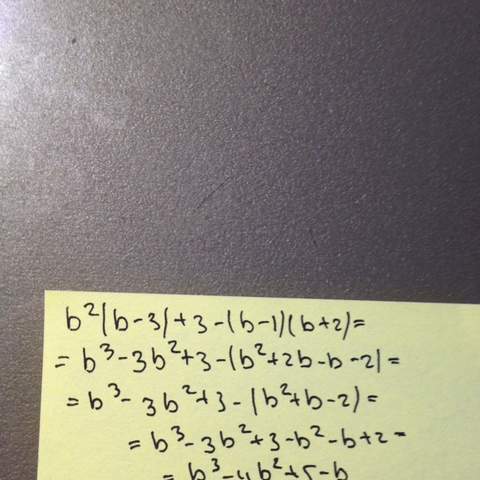 b²(b-3)+3-(b-1)(b+2)=
=b³-3b²+3-(b²+2b-b-2)=
=b³-3b²+3-(b²+b-2)=
=b³-3b²+3-b²-b+2=
=b³-4b²+5-b